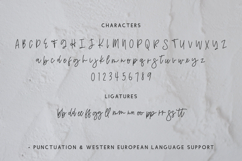 CHARACTERS
A B C D E F G H I J K L M N O P Q R S T U V W X Y Z
a b c d e f g h i j k l m n o p q r s t u v w x y z
0 1 2 3 4 5 6 7 8 9
LIGATURES
bb dd ee ff gg ll mm nn oo pp rr ss tt
- PUNCTUATION & WESTERN EUROPEAN LANGUAGE SUPPORT